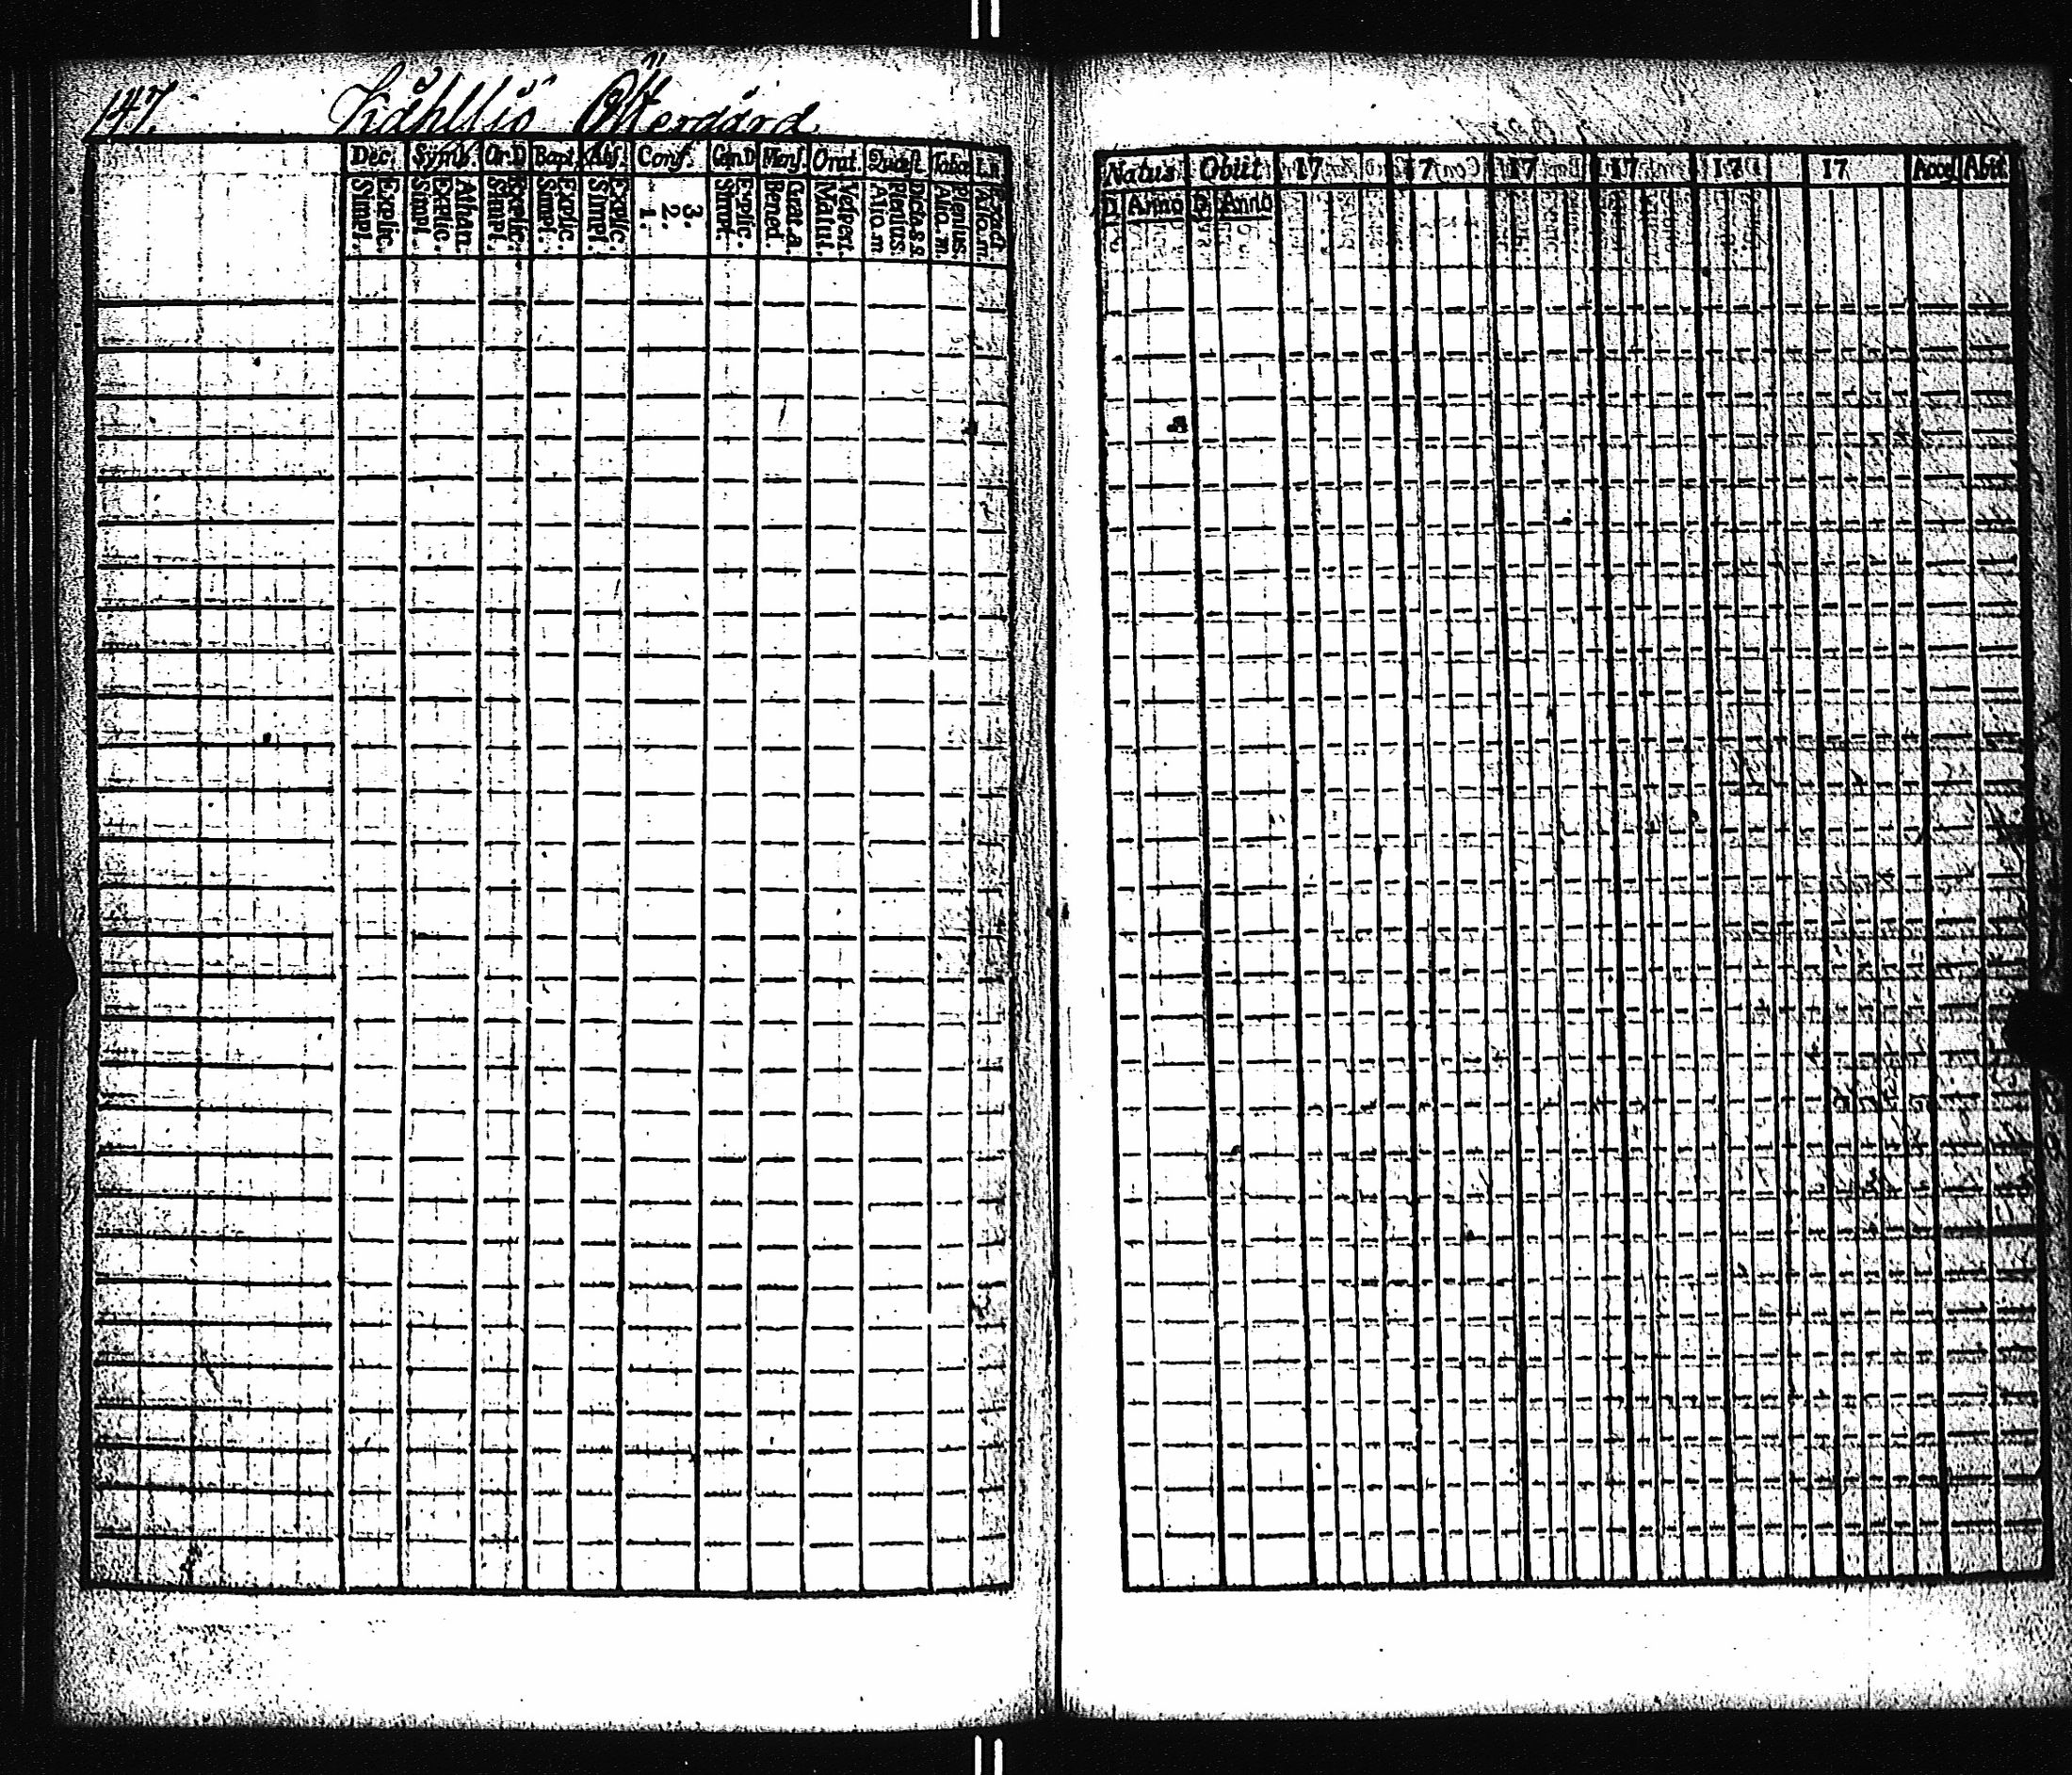 147. Kåhlsiö Östergård
Dec. Symb. Or.D Bapt. Abs. Conf. Cœn.D Mens. Orat. Quæst. Tabcæ L.n
Simpl. Explic. Simpl. Explic. Athan. Simpl. Explic. Simpl. Explic. Simpl. Explic. 1. 2. 3. Simpl. Explic. Bened. Grat. a. Matut. Vespert. Alio. m Plenius. Dicta s s. Alio. m. Plenius. Alio. m. Exact.
Natus Obiit 17 17 17 17 17 17 Acces Abit
D. Anno D. Anno